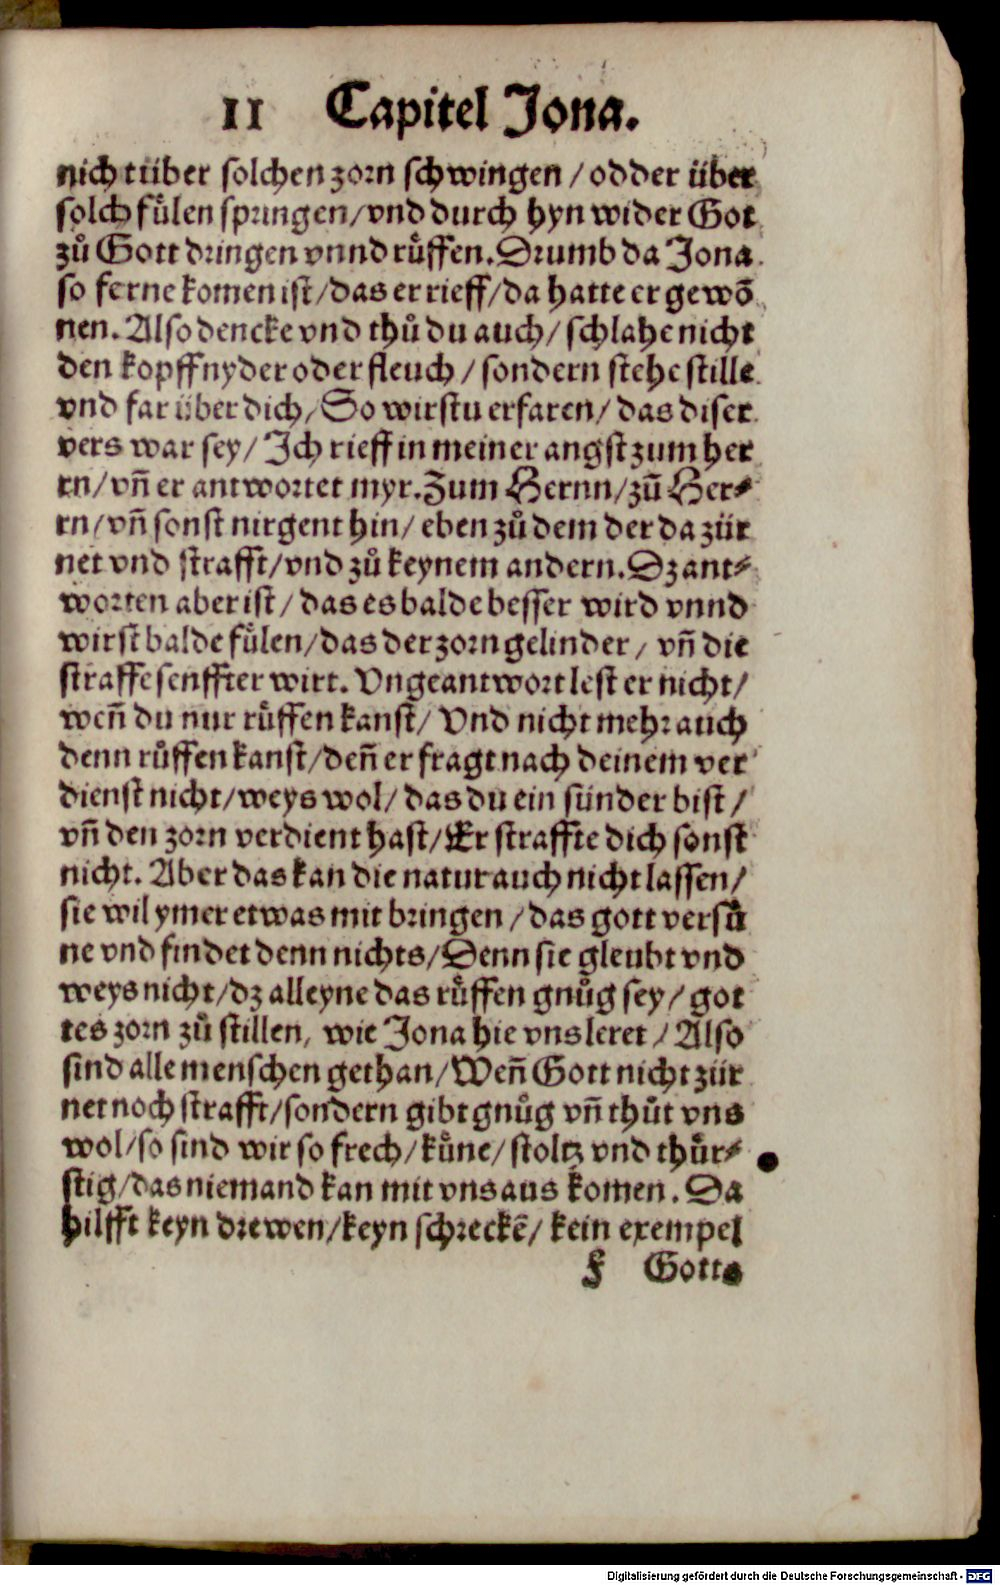 II Capitel Jona.
nicht über solchen zorn schwingen / odder über
solch fůlen springen / vnd durch hyn wider Got
zů Gott dringen vnnd růffen. Drumb da Jona
so ferne komen ist / das er rieff / da hatte er gewõ
nen. Also dencke vnd thů du auch / schlahe nicht
den kopff nyder oder fleuch / sondern stehe stille
vnd far über dich / So wirstu erfaren / das diser
vers war sey / Ich rieff in meiner angst zum her
rn / vñ er antwortet myr. Zum Hernn / zů Her⸗
rn / vñ sonst nirgent hin / eben zů dem der da zür
net vnd strafft / vnd zů keynem andern. Dz ant⸗
worten aber ist / das es balde besser wird vnnd
wirst balde fůlen / das der zorn gelinder / vñ die
straffe senffter wirt. Vngeantwort lest er nicht /
weñ du nur růffen kanst / Vnd nicht mehr auch
denn růffen kanst / deñ er fragt nach deinem ver
dienst nicht / weys wol / das du ein sünder bist /
vñ den zorn verdient hast / Er straffte dich sonst
nicht. Aber das kan die natur auch nicht lassen /
sie wil ymer etwas mit bringen / das gott versů
ne vnd findet denn nichts / Denn sie gleubt vnd
weys nicht / dz alleyne das růffen gnůg sey / got
tes zorn zů stillen, wie Jona hie vns leret / Also
sind alle menschen gethan / Weñ Gott nicht zür
net noch strafft / sondern gibt gnůg vñ thůt vns
wol / so sind wir so frech / kůne / stoltz vnd thůr⸗
stig / das niemand kan mit vns aus komen. Da
hilfft keyn drewen / keyn schreckẽ / kein exempel
f Gotts
Digitalisierung gefördert durch die Deutsche Forschungsgemeinschaft - DFG